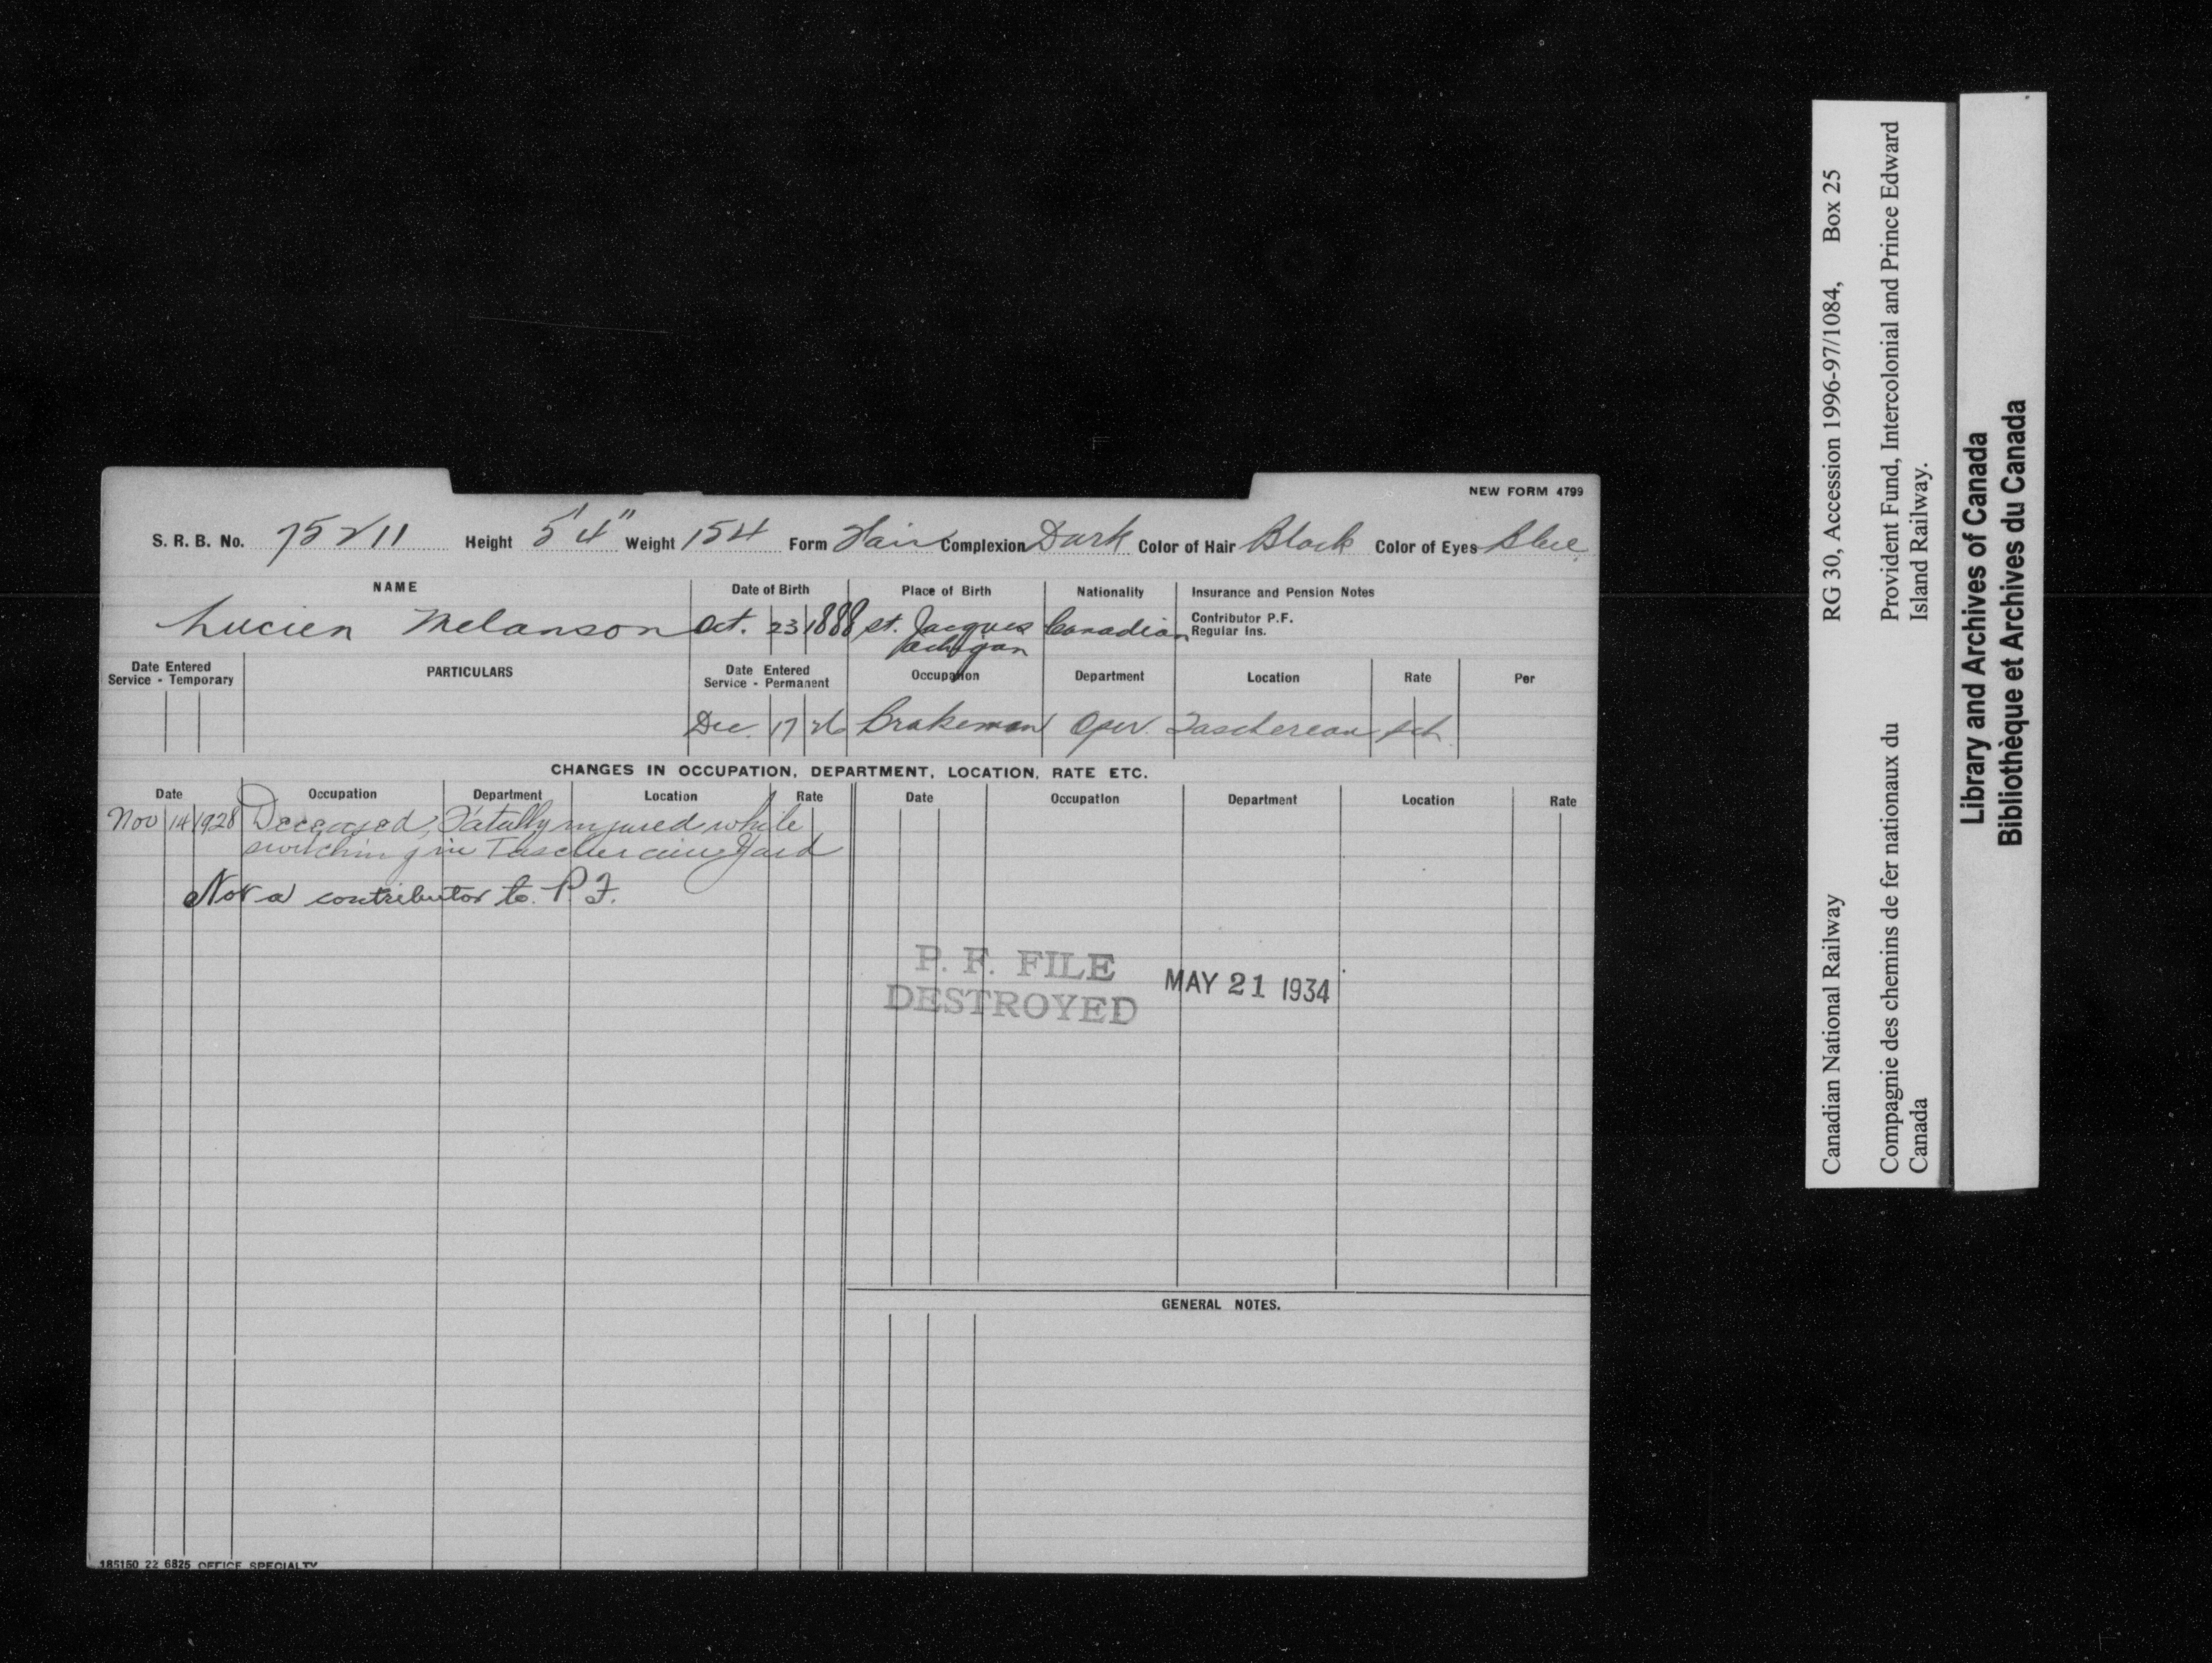 NEW FORM 4799
S. R. B. No. 75211 Height 5'4" Weight 154 Form Fair Complexion Dark Color of Hair Black Color of Eyes Blue
NAME Date of Birth Place of Birth Nationality Insurance and Pension Notes
Lucien Melanson Oct. 23 1888 St. Jacques Canadian Contributor P.F.
Achigan Regular Ins.
Date Entered Service - Temporary PARTICULARS Date Entered Service - Permanent Occupation Department Location Rate Per
Dec. 17 26 Brakeman Oper. Taschereau Sch
CHANGES IN OCCUPATION, DEPARTMENT, LOCATION, RATE ETC.
Date Occupation Department Location Rate Date Occupation Department Location Rate
Nov 14 1928 Deceased, Fatally injured while
switching in Taschereau Yard
Not a contributor to P.F.
P. F. FILE
DESTROYED MAY 21 1934
GENERAL NOTES.
185150 22 6825 OFFICE SPECIALTY
Canadian National Railway RG 30, Accession 1996-97/1084, Box 25
Compagnie des chemins de fer nationaux du Canada
Provident Fund, Intercolonial and Prince Edward Island Railway.
Library and Archives of Canada
Bibliothèque et Archives du Canada